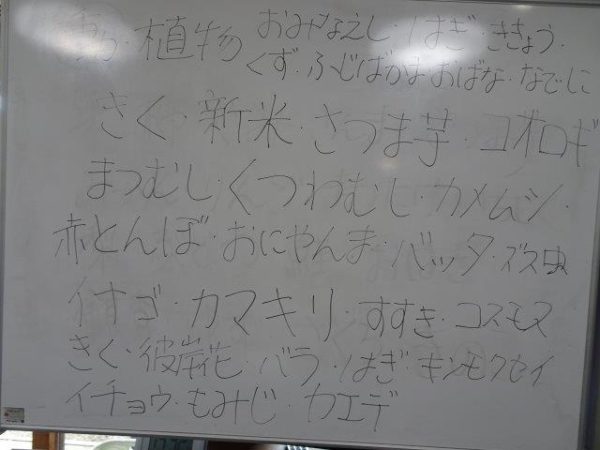 動・植物 おみなえし・はぎ・ききょう・
くず・ふじばかま おばな・なでしこ
きく・新米・さつま芋・コオロギ
まつむし・くつわむし・カメムシ・
赤とんぼ・おにやんま・バッタ・ズズ虫
イナゴ・カマキリ・すすき・コスモス
きく・彼岸花・バラ・はぎ・キンモクセイ
イチョウ・もみじ・カエデ